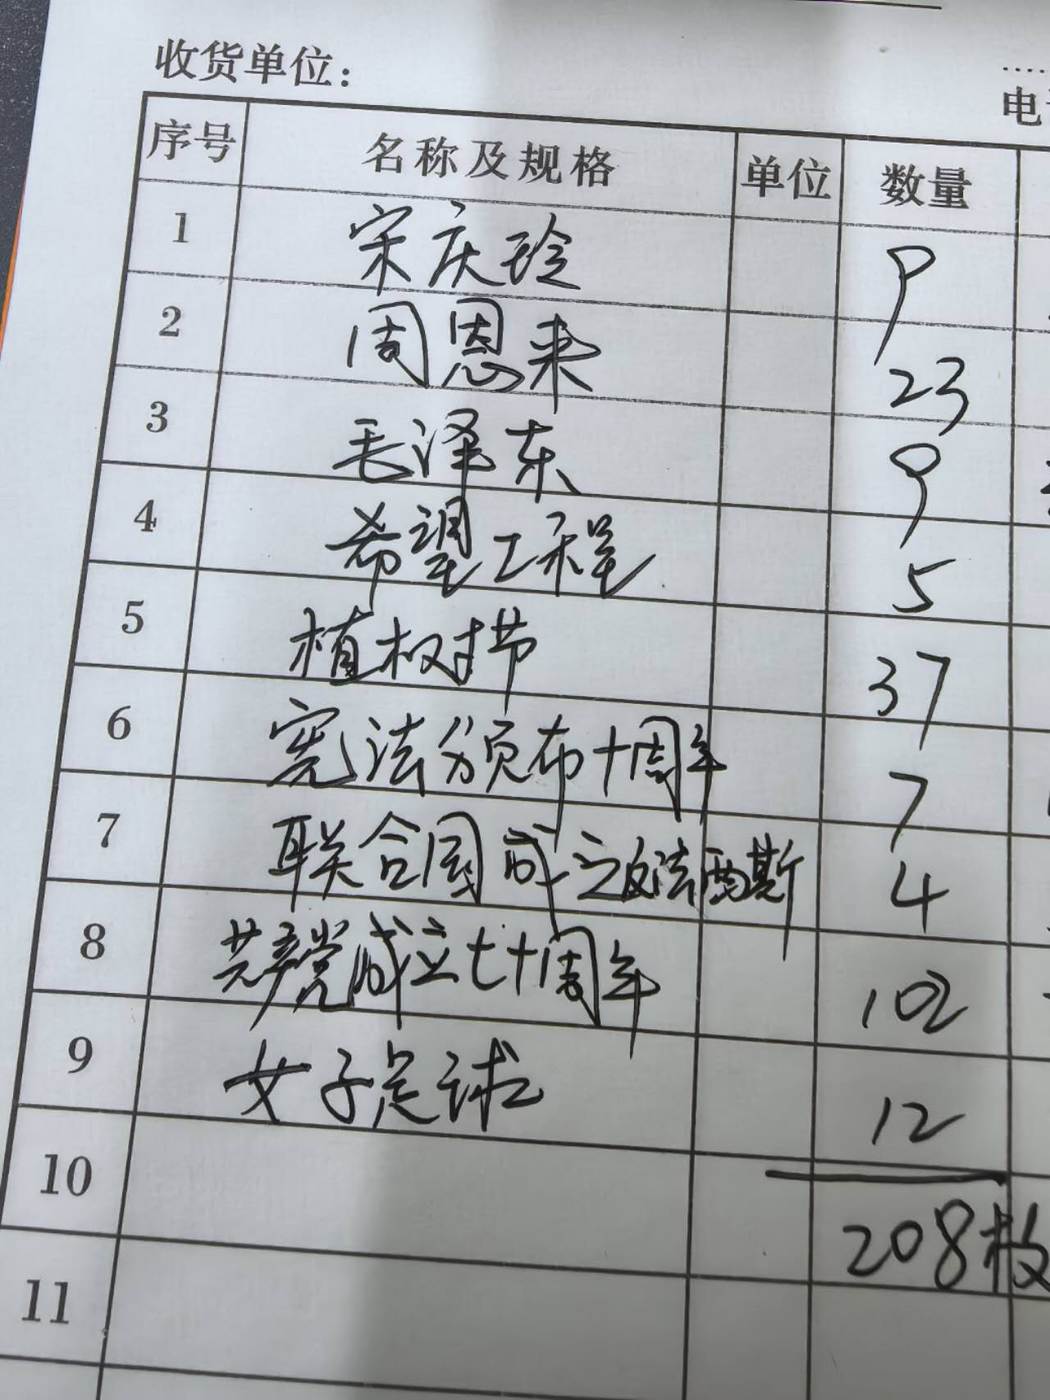 收货单位：
电
序号 名称及规格 单位 数量
1 宋庆玲 9
2 周恩来 23
3 毛泽东 9
4 希望工程 5
5 植树节 37
6 宪法颁布十周年 7
7 联合国成立反法西斯 4
8 共产党成立七十周年 102
9 女子足球 12
10 208枚
11